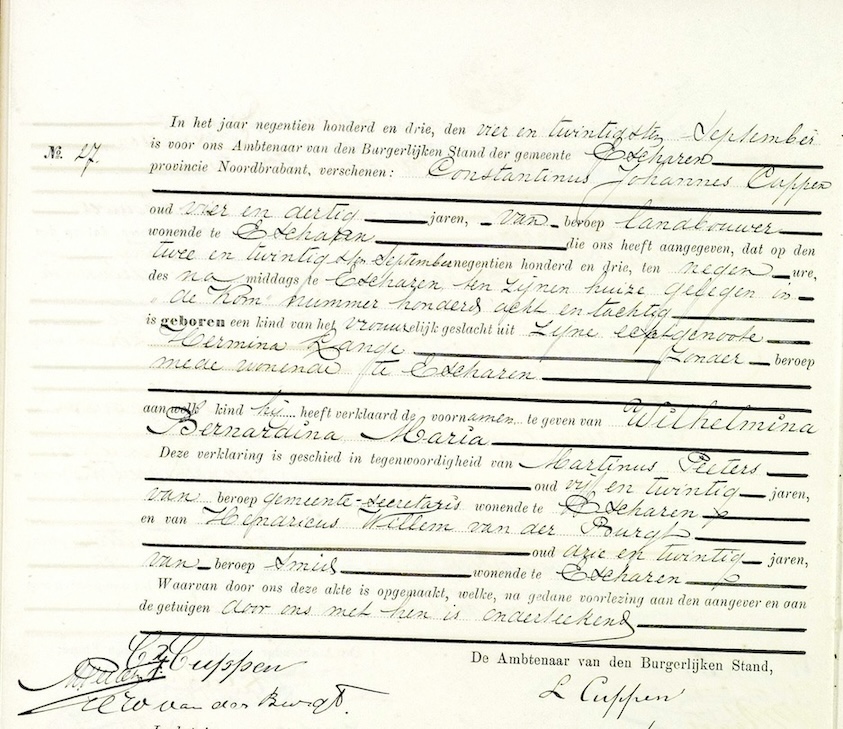 In het jaar negentien honderd en drie, den vier en twintigsten September
№. 27.
is voor ons Ambtenaar van den Burgerlijken Stand der gemeente Escharen
provincie Noordbrabant, verschenen: Constantinus Johannes Cuppen
oud vier en dertig jaren, van beroep landbouwer
wonende te Escharen die ons heeft aangegeven, dat op den
twee en twintigsten September negentien honderd en drie, ten negen ure,
des na middags te Escharen ten zijnen huize gelegen in
de Kom nummer honderd acht en tachtig
is geboren een kind van het vrouwelijk geslacht uit zijne echtgenoote
Hermina Lange zonder beroep
mede wonende te Escharen
aan welk kind hij heeft verklaard de voornamen te geven van Wilhelmina
Bernardina Maria
Deze verklaring is geschied in tegenwoordigheid van Martinus Peeters
oud vijf en twintig jaren,
van beroep gemeente-secretaris wonende te Escharen
en van Hendricus Willem van der Burgt
oud drie en twintig jaren,
van beroep smid wonende te Escharen
Waarvan door ons deze akte is opgemaakt, welke, na gedane voorlezing aan den aangever en aan
de getuigen door ons met hen is onderteekend
De Ambtenaar van den Burgerlijken Stand,
Cuppen
van der Burgt.
L Cuppen